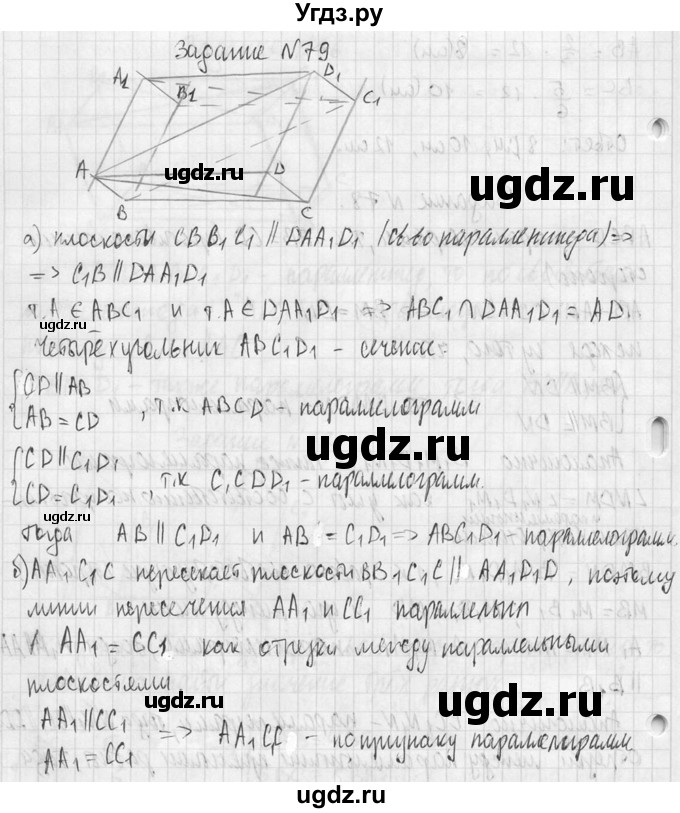 Угдз.ру
Задание N79
A1
D1
B1
C1
A
D
B
C
ugdz.ru
ugdz.ru
а) плоскости CBB1C1 ∥ DAA1D1 (св-во параллепипеда) =>
=> C1B ∥ DAA1D1
ugdz.ru
т.A ∈ ABC1 и т.A ∈ DAA1D1 => ABC1 ∩ DAA1D1 = AD1
Четырёхугольник ABC1D1 - сечение
ugdz.ru
CD ∥ AB
AB = CD , т.к ABCD - параллелограмм
ugdz.ru
CD ∥ C1D1
CD = C1D1 , т.к C1CDD1 - параллелограмм.
ugdz.ru
Тогда AB ∥ C1D1 и AB = C1D1 => ABC1D1 - параллелограмм.
б) AA1C1C пересекает плоскости BB1C1C ∥ AA1D1D, поэтому
линии пересечения AA1 и CC1 параллельны
AA1 = CC1 как отрезки между параллельными
ugdz.ru
плоскостями
ugdz.ru
AA1 ∥ CC1
AA1 = CC1 => AA1CC1 - по признаку параллелограмм.
ugdz.ru
ugdz.ru